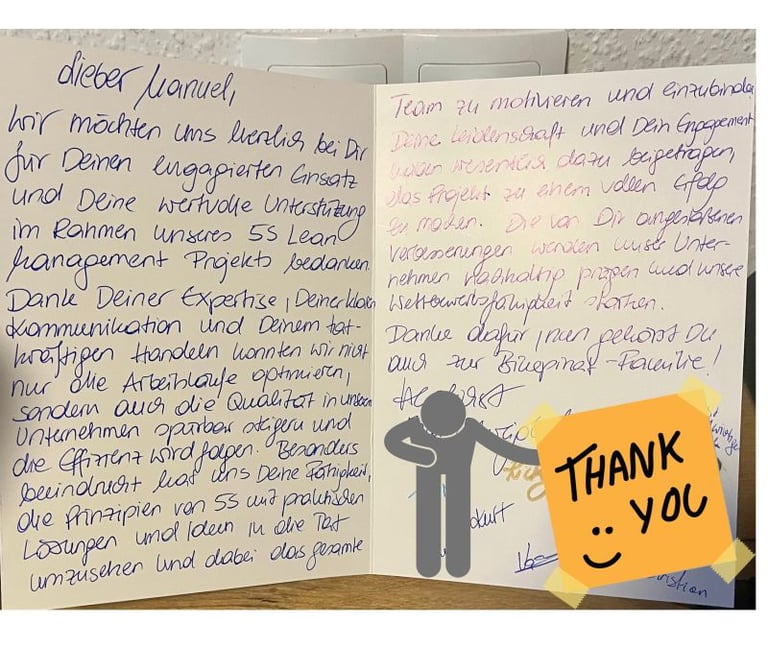 Lieber Manuel,
Wir möchten uns herzlich bei Dir
für Deinen engagierten Einsatz
und Deine wertvolle Unterstützung
im Rahmen unseres 5S Lean
Management Projekts bedanken.
Danke Deiner Expertise, Deiner klaren
Kommunikation und Deinem tat-
kräftigen Handeln konnten wir nicht
nur die Arbeitsläufe optimieren,
sondern auch die Qualität in unserem
Unternehmen spürbar steigern und
die Effizienz wird folgen. Besonders
beeindruckt hat uns Deine Fähigkeit,
die Prinzipien von 5S mit praktischen
Lösungen und Ideen in die Tat
umzusetzen und dabei das gesamte
Team zu motivieren und einzubinden
Deine Leidenschaft und Dein Engagement
haben wesentlich dazu beigetragen,
das Projekt zu einem vollen Erfolg
zu machen. Die von Dir angestoßenen
Verbesserungen werden unser Unter-
nehmen nachhaltig prägen und unsere
Wettbewerbsfähigkeit stärken.
Danke dafür, nun gehörst Du
auch zur -Familie!
Herzlichst
THANK
YOU